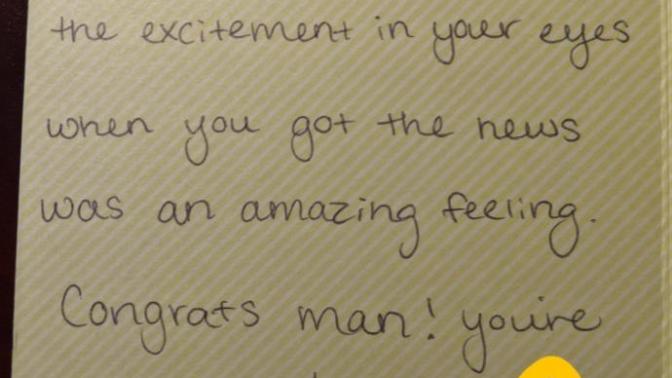 the excitement in your eyes
when you got the news
was an amazing feeling.
Congrats man! you're